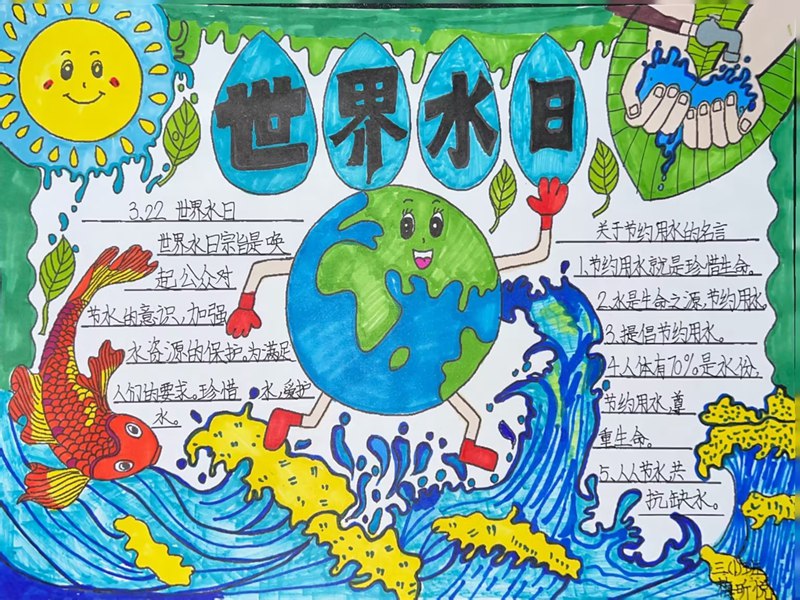 世界水日
3.22 世界水日
世界水日宗旨是唤
起公众对
节水的意识,加强
水资源的保护。为满足
人们的要求。珍惜水,爱护
水。
关于节约用水的名言
1.节约用水就是珍惜生命。
2.水是生命之源,节约用水。
3.提倡节约用水。
4.人体有70%是水份,
节约用水,尊
重生命。
5.人人节水共
抗缺水。